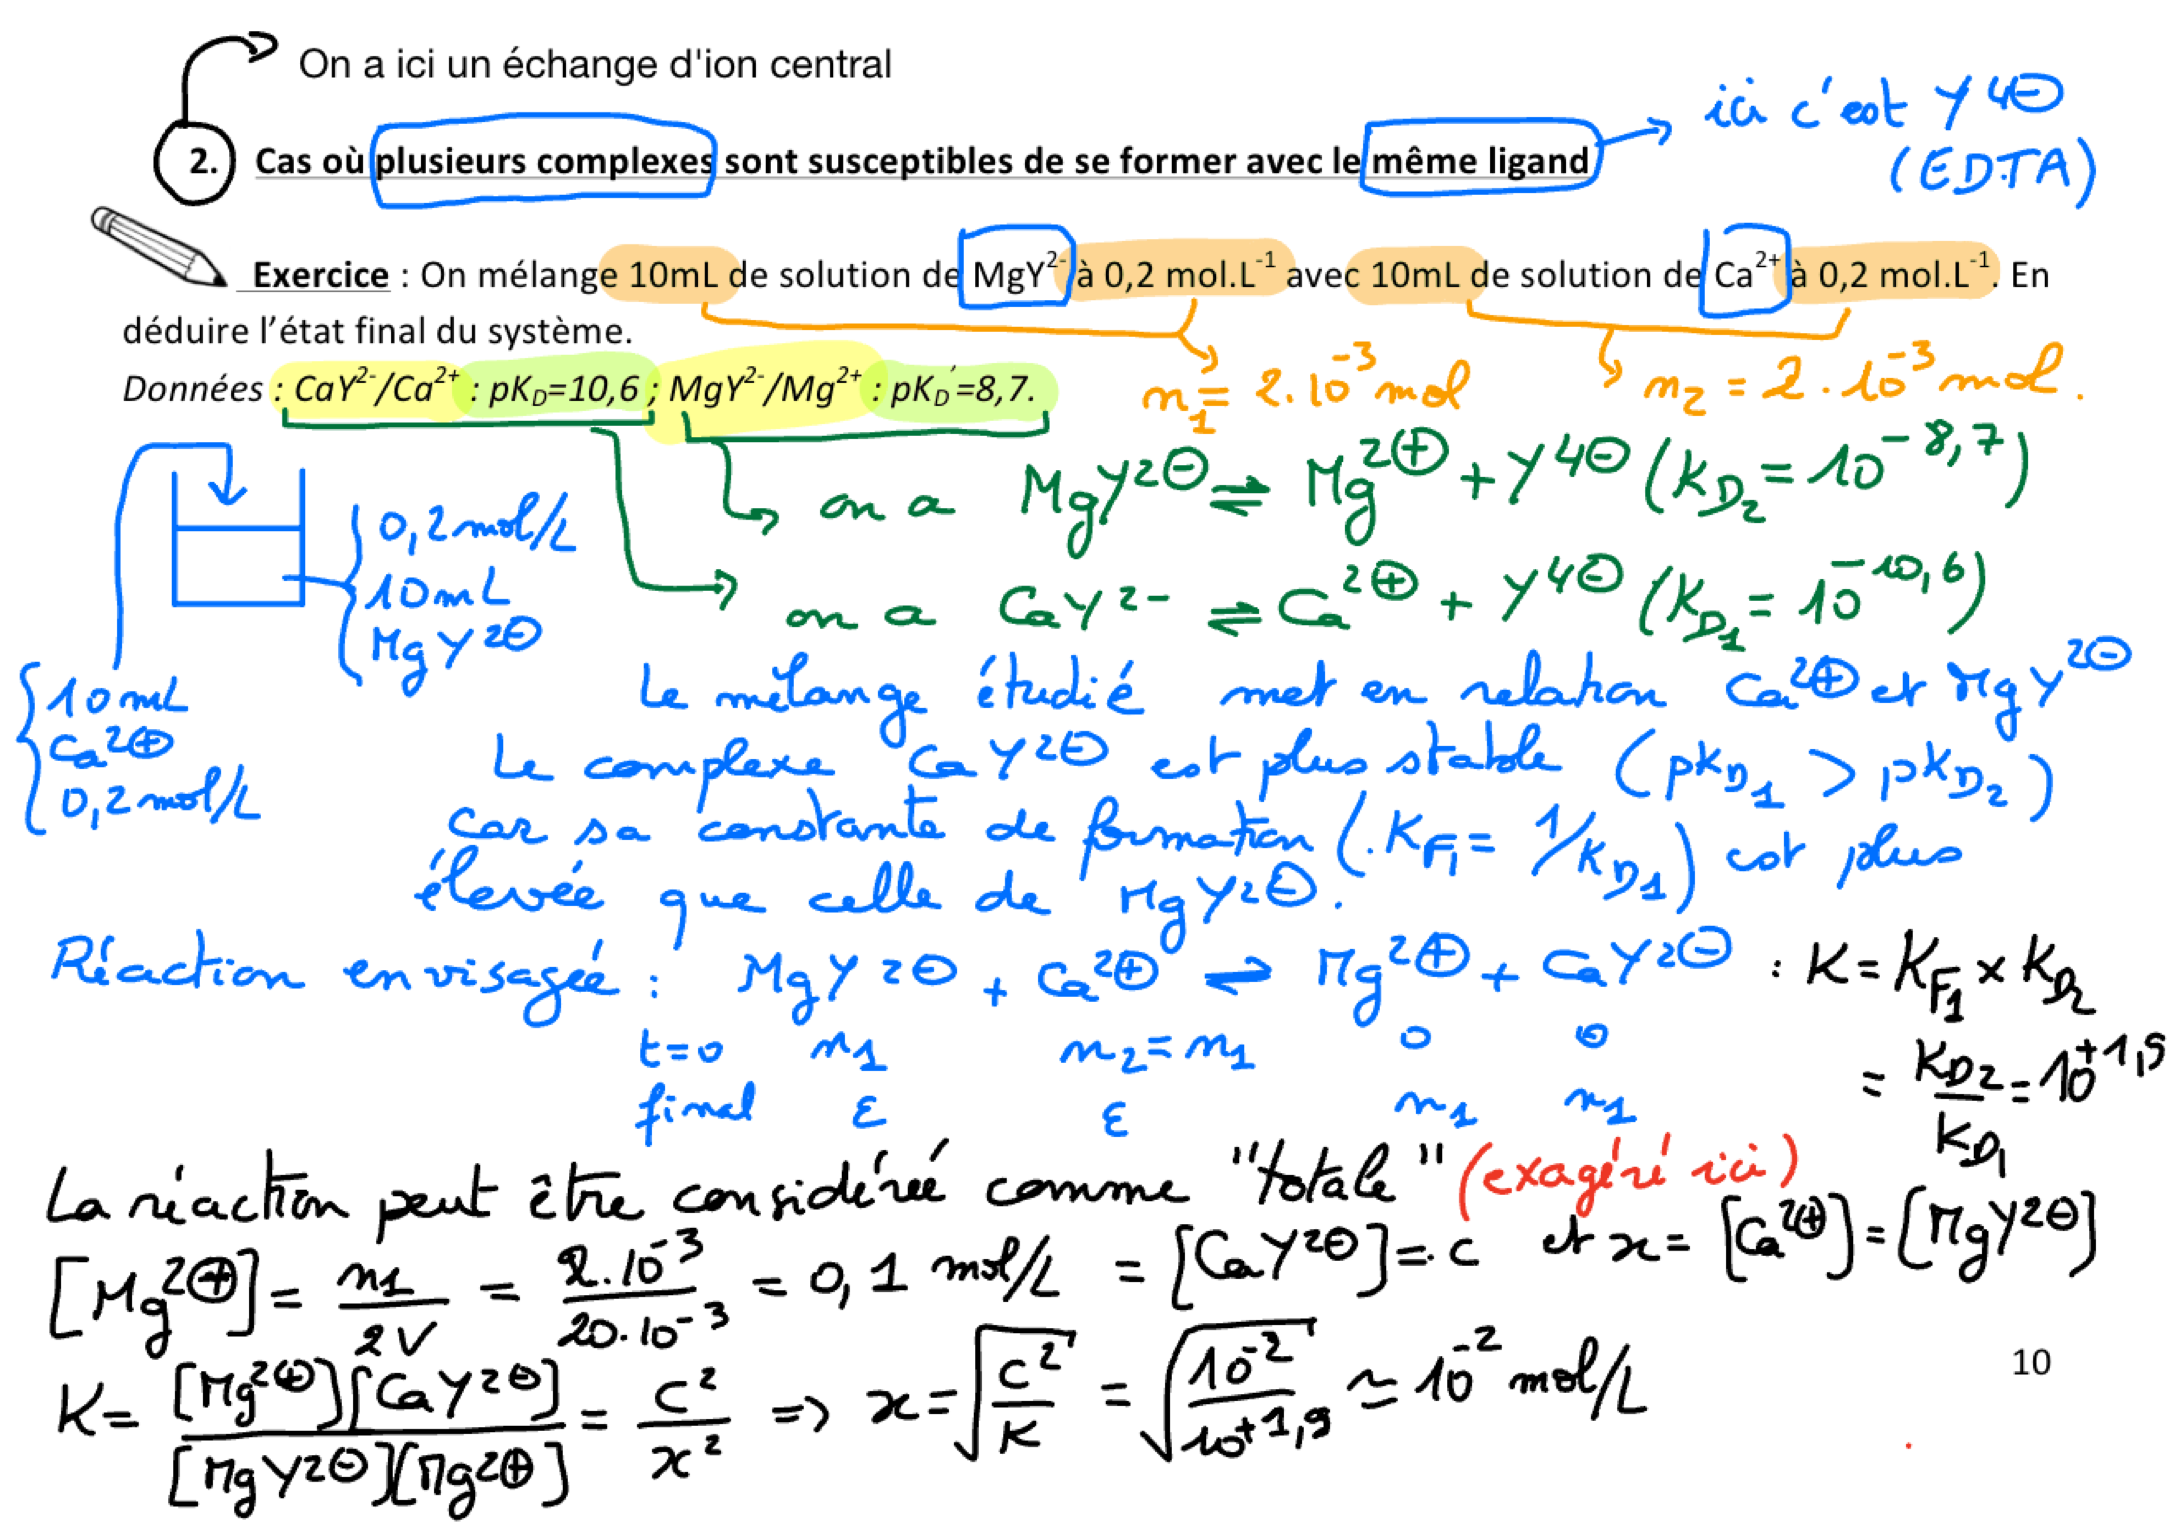 On a ici un échange d'ion central
ici c'est Y4⊖
(EDTA)
2. Cas où plusieurs complexes sont susceptibles de se former avec le même ligand
Exercice : On mélange 10mL de solution de MgY²⁻ à 0,2 mol.L⁻¹ avec 10mL de solution de Ca²⁺ à 0,2 mol.L⁻¹. En
déduire l’état final du système.
Données : CaY²⁻/Ca²⁺ : pK_D=10,6 ; MgY²⁻/Mg²⁺ : pK_D'=8,7.
n₁ = 2.10⁻³ mol
n₂ = 2.10⁻³ mol.
on a MgY2⊖ ⇌ Mg2⊕ + Y4⊖ (K_D₂ = 10⁻⁸,⁷)
on a CaY2- ⇌ Ca2⊕ + Y4⊖ (K_D₁ = 10⁻¹⁰,⁶)
0,2mol/L
10mL
MgY2⊖
10mL
Ca2⊕
0,2mol/L
Le mélange étudié met en relation Ca2⊕ et MgY2⊖
Le complexe CaY2⊖ est plus stable (pK_D₁ > pK_D₂)
car sa constante de formation (.K_F₁ = 1/K_D₁) est plus
élevée que celle de MgY2⊖.
Réaction envisagée : MgY2⊖ + Ca2⊕ ⇌ Mg2⊕ + CaY2⊖ : K = K_F₁ x K_D₂
t=0 n₁ n₂=n₁ 0 0
= K_D₂/K_D₁ = 10⁺¹,⁹
final ε ε n₁ n₁
La réaction peut être considérée comme "totale" (exagéré ici)
[Mg2⊕] = n₁/2V = 2.10⁻³/20.10⁻³ = 0,1 mol/L = [CaY2⊖] = c et x = [Ca2⊕] = [MgY2⊖]
K = [Mg2⊕][CaY2⊖]/[MgY2⊖][Mg2⊕] = c²/x² ⇒ x = √(c²/K) = √(10⁻²/10⁺¹,⁹) ≃ 10⁻² mol/L
10